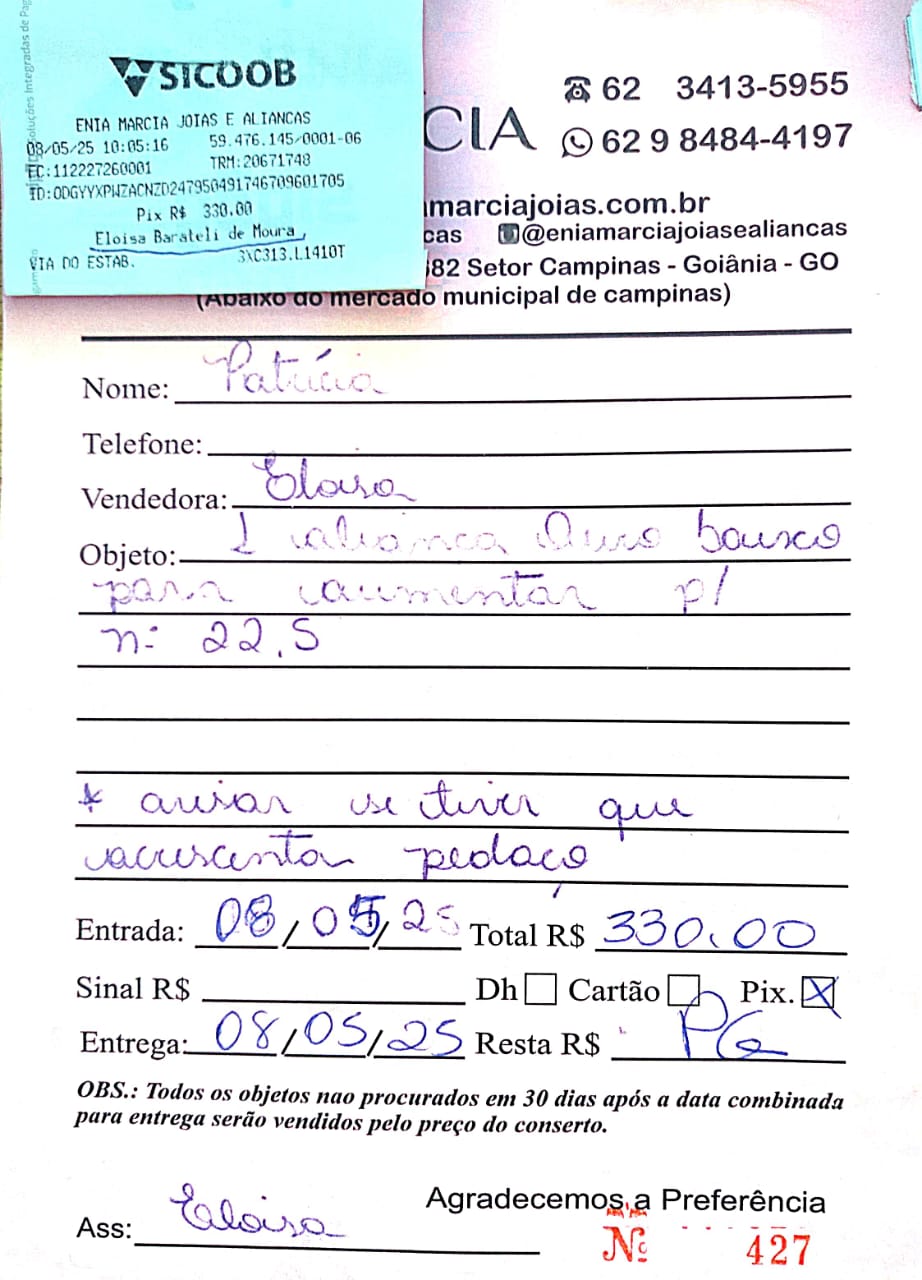 SICOOB
ENIA MARCIA JOIAS E ALIANCAS
08/05/25 10:05:16 59.476.145/0001-06
EC:112227260001 TRM:20671748
ID:ODGYYXPWZACNZD247950491746709601705
Pix R$ 330.00
Eloisa Barateli de Moura
VIA DO ESTAB. 3XC313.L1410T
Soluções Integradas de Pag
CIA
62 3413-5955
62 9 8484-4197
marciajoias.com.br
cas @eniamarciajoiasealiancas
682 Setor Campinas - Goiânia - GO
(Abaixo do mercado municipal de campinas)
Nome: Patrícia
Telefone:
Vendedora: Eloisa
Objeto: 1 aliança Ouro
para aumentar p/
n: 22,5
* avisar se tiver que
acrescentar pedaço
Entrada: 08/05/25 Total R$ 330,00
Sinal R$ Dh Cartão Pix. X
Entrega: 08/05/25 Resta R$ PG
OBS.: Todos os objetos nao procurados em 30 dias após a data combinada
para entrega serão vendidos pelo preço do conserto.
Agradecemos a Preferência
Ass: Eloisa
Nº 427